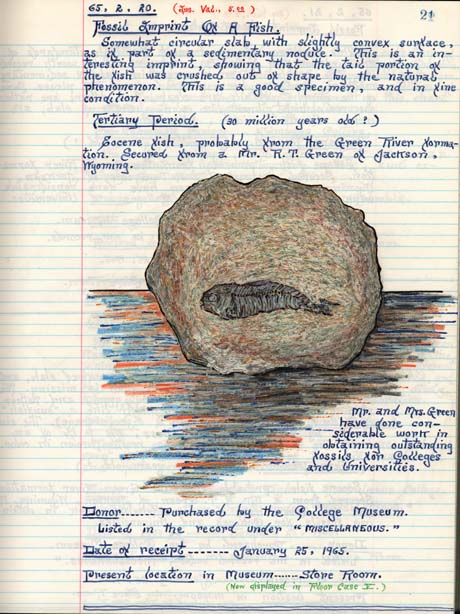 65. 2. 20. (Ins. Val., 5.00)
21
Fossil Imprint Of A Fish.
Somewhat circular slab with slightly convex surface,
as if part of a sedimentary nodule. This is an in-
teresting imprint, showing that the tail portion of
the fish was crushed out of shape by the natural
phenomenon. This is a good specimen, and in fine
condition.
Tertiary Period. (30 million years old?)
Eocene fish, probably from the Green River forma-
tion. Secured from a Mr. R. T. Green of Jackson,
Wyoming.
Mr. and Mrs. Green
have done con-
siderable work in
obtaining outstanding
fossils for Colleges
and Universities.
Donor....... Purchased by the College Museum.
Listed in the record under "MISCELLANEOUS."
Date of receipt -------- January 25, 1965.
Present location in Museum....... Store Room.
(Now displayed in Floor Case I.)